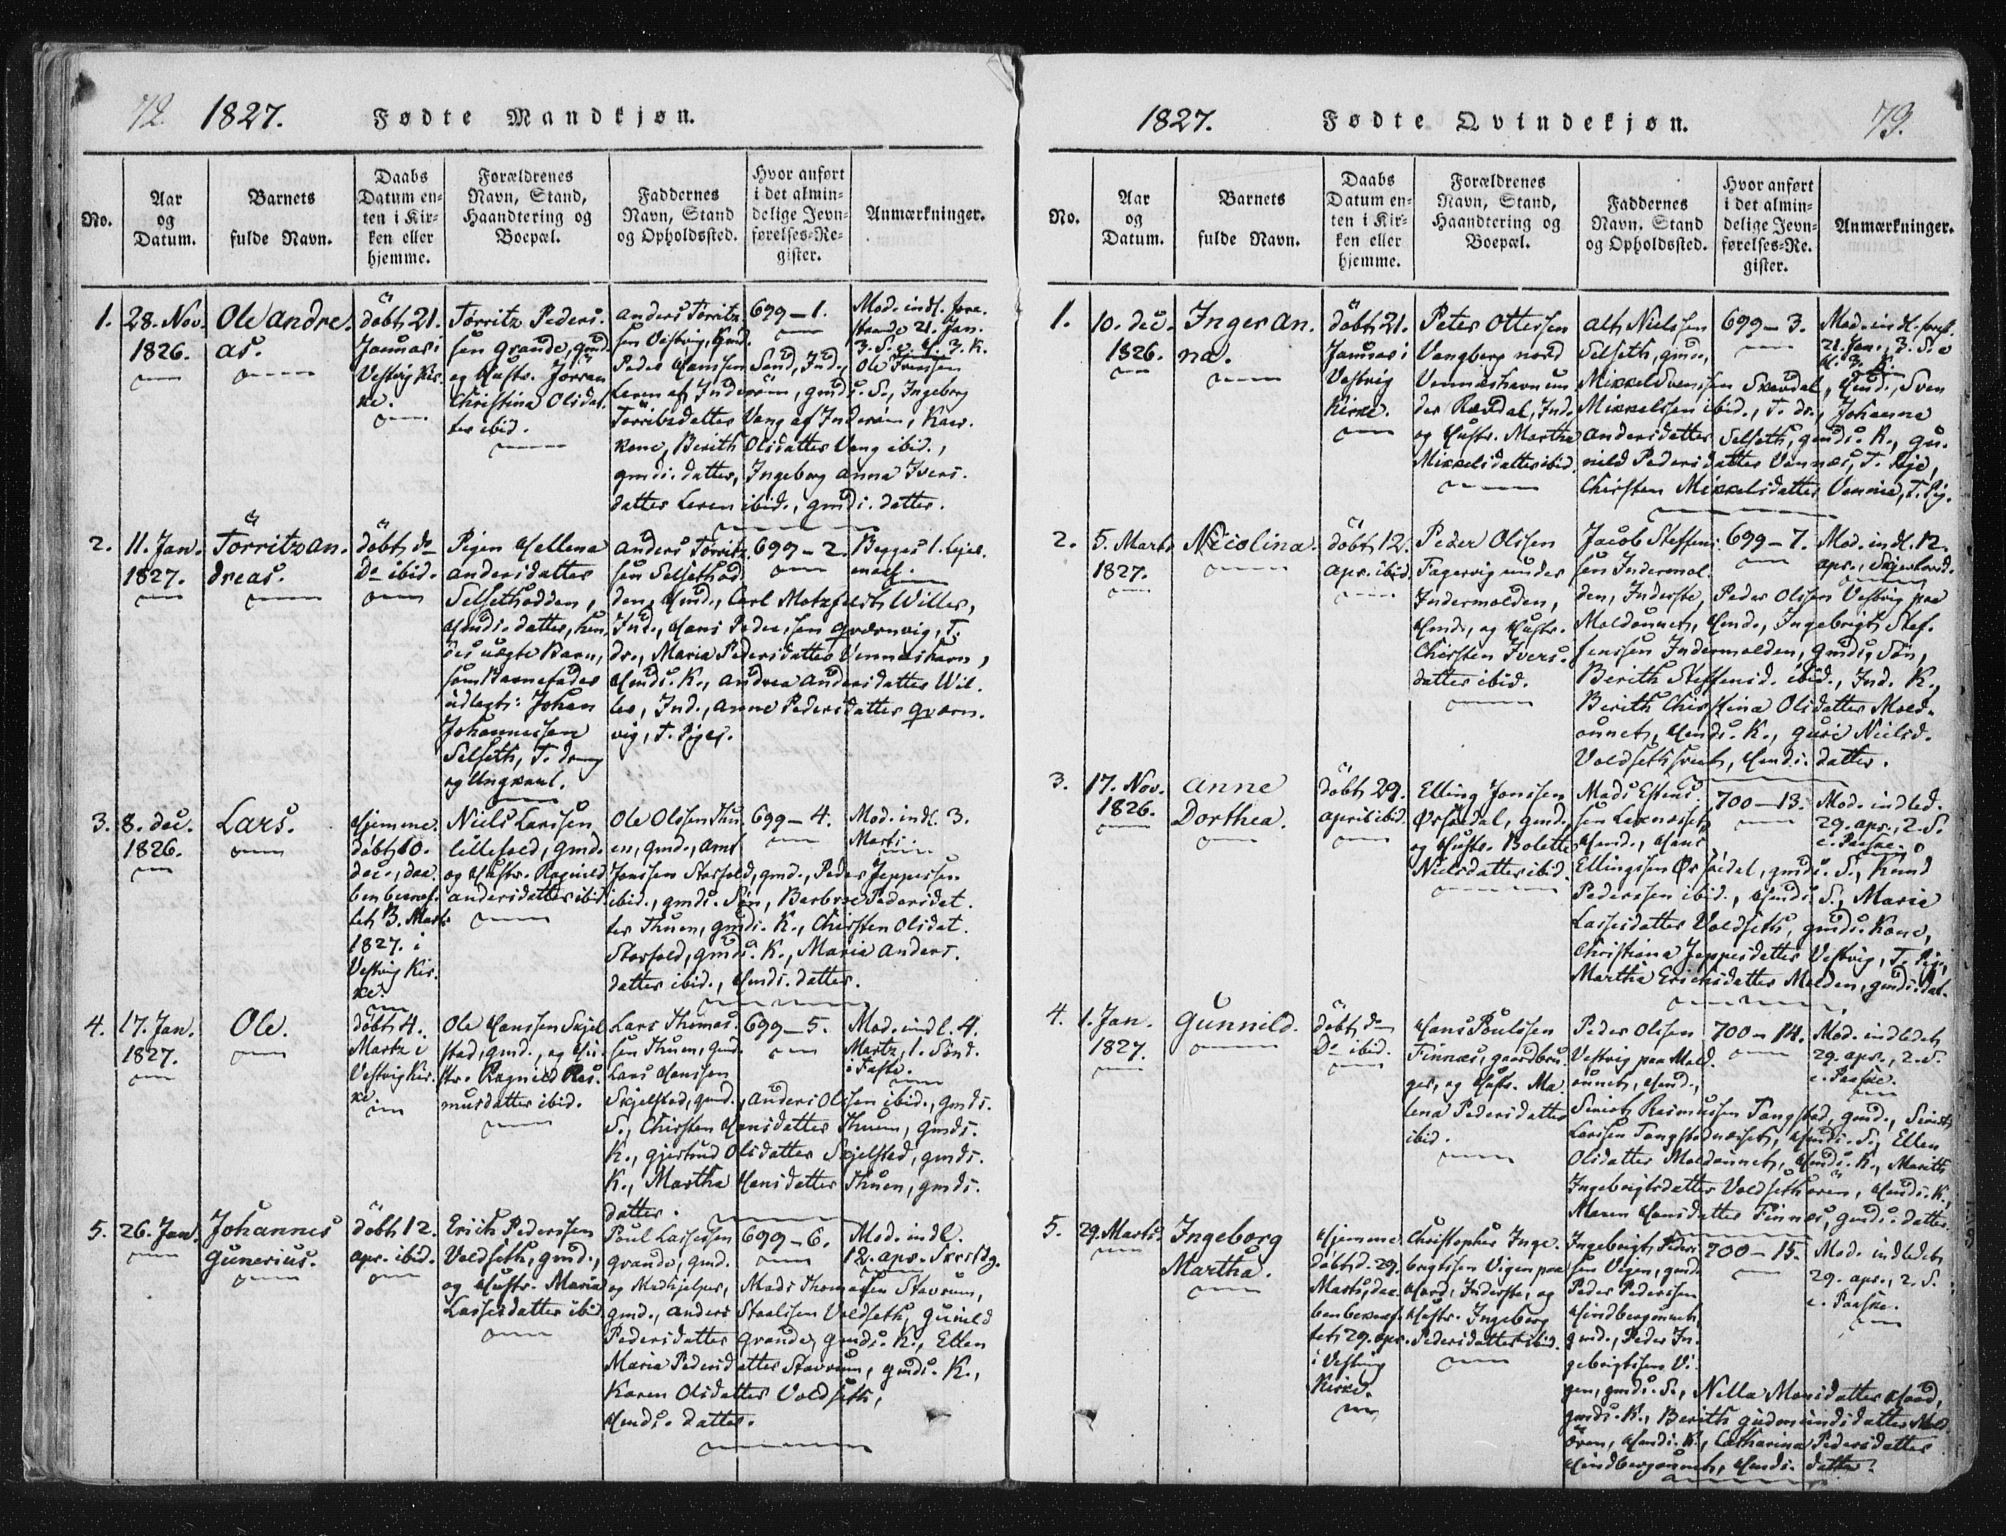 72. 1827. Fødte Mandkjøn.
No.
Aar
og
Datum.
Barnets
fulde Navn.
Daabs
Datum en-
ten i Kir-
ken eller
hjemme.
Forældrenes
Navn, Stand,
Haandtering og
Boepæl.
Faddernes
Navn, Stand
og Opholdssted.
Hvor anført
i det almin-
delige Jevn-
førelses-Re-
gister.
Anmærkninger.
1.
28. Nov.
1826.
Ole Andre-
as.
döbt 21.
Januar i
Vestvig Kir-
ke.
Törritz Peders-
sen Grande, gmd.
og Hustr. Jörran
Christina Olsdat-
ter ibid.
Anders Törritz-
sen Vestvig, Hmd.
Peder Hanssen Sand, Ind.,
Leren af Inderöm, gmds. S., Ingeborg
Törrisdatter Vang af Inderöm,
Kone, Berith Olsdatter Vang ibid.,
gmds. datter, Ingeborg Anna Ivers-
datter Leren ibid., gmds. datter.
699 — 1.
Mod. indl. fore-
staaende 21. Jan.
3. S. e. H. 3. K.
2.
11. Jan.
1827.
Törritz An-
dreas.
döbt do
Do ibid.
Pigen Hellena
Andersdatter
Selsethodden,
Hmds. datter, hen-
des uægte Barn,
som Barnefader
udlagt: Johan
Johannessen
Selseth, T. dreng
og Ungkarl.
Anders Törritz-
sen Selsethod-
den, Hmd., Carl Motzfeldt Willer,
Ind., Hans Pederssen Qværnvig, T.
dr., Maria Pedersdatter Vennashavn,
Hmds. K., Andrea Andersdatter Wil-
ler, Ind., Anne Pedersdatter Qværn-
vig, T. Piger.
699 — 2.
Begges 1. Lejer-
maal.
3.
8. dec.
1826.
Lars.
Hjemme-
döbt 10.
dec., daa-
ben beret-
tet 3. Marts
1827. i
Vestvig Kir-
ke.
Niels Larssen
Lillefold, gmd.
og Hustr. Ragnild
Andersdatter ibid.
Ole Olssen Thu-
en, gmd., Arnt
Jonssen Storfold, gmd., Peder Jeppessen
ibid., gmds. Sön, Barbroe Pedersdat-
ter Thuen, gmds. K., Chirsten Olsdat.
Storfold, gmds. K., Maria Anders-
datter ibid., Hmds. datter.
699 — 4.
Mod. indl. 3.
Marts.
4.
17. Jan.
1827.
Ole.
döbt 4.
Martz i
Vestvig Kir-
ke.
Ole Hanssen Skjel-
stad, gmd., og Hu-
str. Ragnild Ras-
musdatter ibid.
Lars Thomas-
sen Thuen, gmd.
Lars Hanssen
Skjelstad, gmd., Anders Olssen ibid., gmds.
S., Chirsten Hansdatter Thuen, gmds.
K., Gjertrud Olsdatter Skjelstad, gmds.
K., Martha Hansdatter Thuen, gmds.
datter.
699 — 5.
Mod. indl. 4.
Martz, 1. Sönd.
i Faste.
5.
26. Jan.
Johannes
Gunerius.
döbt 12.
apr. ibid.
Erich Pederssen
Valdseth, gmd.,
og Hustr. Maria
Lassesdatter ibid.
Poul Lassessen
Grande, gmd.
og Medhjelper, Mads Thomassen Stavrum,
gmd., Anders Staalssen Voldseth, Gunild
Pedersdatter Grande, gmds. K., Ellen
Maria Pedersdatter Stavrum, gmds. K.,
Karen Olsdatter Voldseth,
Hmds. datter.
699 — 6.
Mod. indl.
12. apr. Skertdg.
1827. Fødte Qvindekjøn. 73.
No.
Aar
og
Datum.
Barnets
fulde Navn.
Daabs
Datum en-
ten i Kir-
ken eller
hjemme.
Forældrenes
Navn, Stand,
Haandtering og
Boepæl.
Faddernes
Navn, Stand
og Opholdssted.
Hvor anført
i det almin-
delige Jevn-
førelses-Re-
gister.
Anmærkninger.
1.
10. dec.
1826.
Inger An-
na.
döbt 21.
Januar i
Vestvig
Kirke.
Peter Ottersen
Vangberg nord
Vennashavn un-
der Rændal, Ind.
og Hustr. Martha
Mikkelsdatter ibid.
Alt Nielssen
Selseth, gmd.,
Mikkel Svenssen Skevdal, Hmd., Sven
Mikkelssen ibid., T. dr., Johanne
Andersdatter Selseth, gmds. K., Gu-
nild Pedersdatter Vennes, T. Pige,
Chirsten Mikkelsdatter Vennie, T. Pig.
699 — 3.
Mod. indl. forest.
21. Jan., 3. S. e.
H. 3. K.
2.
5. Marts
1827.
Nicolina.
döbt 12.
apr. ibid.
Peder Olssen
Fagervig under
Indermolden,
Hmd., og Hustr.
Chirsten Ivers-
datter ibid.
Jacob Steffens-
sen Indermol-
den, Inderste, Peder Olssen Vestvig paa
Moldaunet, Hmd., Ingebrigt Stef-
fenssen Indermolden, gmds. Sön,
Berith Steffensd. ibid., Ind. K.,
Berith Christina Olsdatter Mold-
aunet, Hmds. K., Guri Nielsd.
Voldsethsveet, Hmds. datter.
699 — 7.
Mod. indl. 12.
apr., Skjertorsd.
3.
17. Nov.
1826.
Anne
Dorthea.
döbt 29.
april ibid.
Elling Jonssen
Örsjödal, gmd.
og Hustr. Bolette
Nielsdatter ibid.
Mads Estens-
sen Lexnæsset,
Hmd., Hans
Ellingssen Örsjödal, gmds. S., Knud
Pederssen ibid., Hmds. S., Marie
Lassesdatter Voldseth, gmds. Kone,
Christiana Jeppesdatter Vestvig, T. Pige,
Martha Erichsdatter Molden, gmds. dat.
700 — 13.
Mod. indled.
29. apr., 2. S.
e. Paaske.
4.
1. Jan.
1827.
Gunnild.
döbt do
Do ibid.
Hans Poulssen
Finnæs, gaardbru-
ger, og Hustr. Ma-
lena Pedersdatter
ibid.
Peder Olssen
Vestvig paa Mold-
aunet, Hmd.,
Sivert Rasmussen Tangstad, gmd., Sivert
Larssen Tangstadnæsset, Hmds. S., Ellen
Olsdatter Moldaunet, Hmds. K., Marith
Ingebrigtsdatter Voldsethören, Hmds. K.,
Maren Hansdatter Finnes, gmds. datter.
700 — 14.
Mod. indledet
29. apr., 2. S.
e. Paaske.
5.
29. Marts.
Ingeborg
Martha.
Hjemme-
döbt d. 29.
Marts, daa-
ben beræt-
tet 29. apr.
i Vestvig
Kirke.
Christopher Inge-
brigtssen Vigen paa
Hoad, Inderste, og
Hustr. Ingeborg
Pedersdatter ibid.
Ingebrigt Peders-
sen Vigen, gmd.
Peder Pederssen
Hindbergaunet,
gmd., Peder In-
gebrigtssen Vi-
gen, gmds. S., Nella Monsdatter Hoad,
gmds. K., Berith Gudmundsdatter Mold-
ören, Hmds. K., Catharina Pedersdatter
Hindbergaunet, Hmds. datter.
700 — 15.
Mod. indledet
29. apr., 2. S.
e. Paaske.